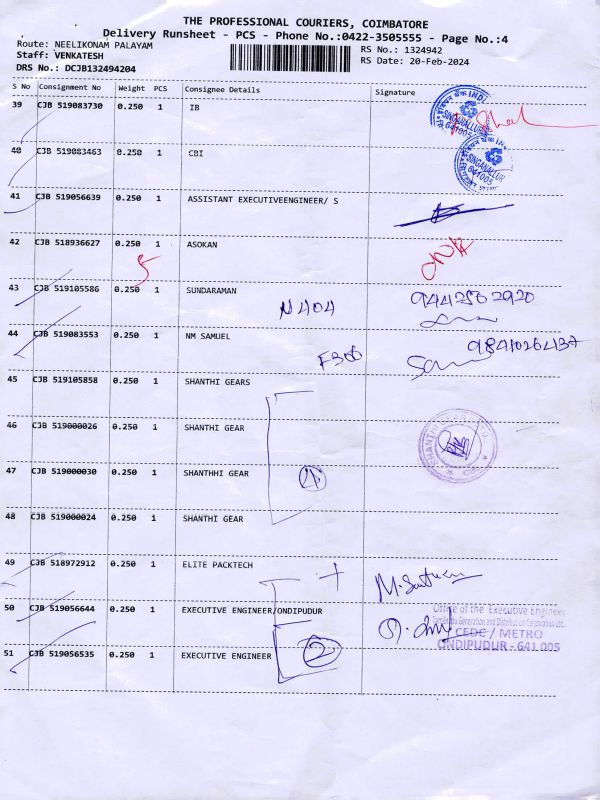 THE PROFESSIONAL COURIERS, COIMBATORE
Delivery Runsheet - PCS - Phone No.:0422-3505555 - Page No.:4
Route: NEELIKONAM PALAYAM
RS No.: 1324942
Staff: VENKATESH
RS Date: 20-Feb-2024
DRS No.: DCJB132494204
S No Consignment No Weight PCS Consignee Details Signature
39 CJB 519083730 0.250 1 IB
SINGANALLUR
641005
40 CJB 519083463 0.250 1 CBI
SINGANALLUR
641005
41 CJB 519056639 0.250 1 ASSISTANT EXECUTIVEENGINEER/ S
42 CJB 518936627 0.250 1 ASOKAN
43 CJB 519105586 0.250 1 SUNDARAMAN N404 9442562920
44 CJB 519083553 0.250 1 NM SAMUEL F306
45 CJB 519105858 0.250 1 SHANTHI GEARS
46 CJB 519000026 0.250 1 SHANTHI GEAR
47 CJB 519000030 0.250 1 SHANTHHI GEAR 4
48 CJB 519000024 0.250 1 SHANTHI GEAR
49 CJB 518972912 0.250 1 ELITE PACKTECH
50 CJB 519056644 0.250 1 EXECUTIVE ENGINEER/ONDIPUDUR
Office of the Executive Engineer
Tamilnadu Generation and Distribution Corporation Ltd.
CEDC / METRO
ONDIPUDUR - 641 005
51 CJB 519056535 0.250 1 EXECUTIVE ENGINEER 2